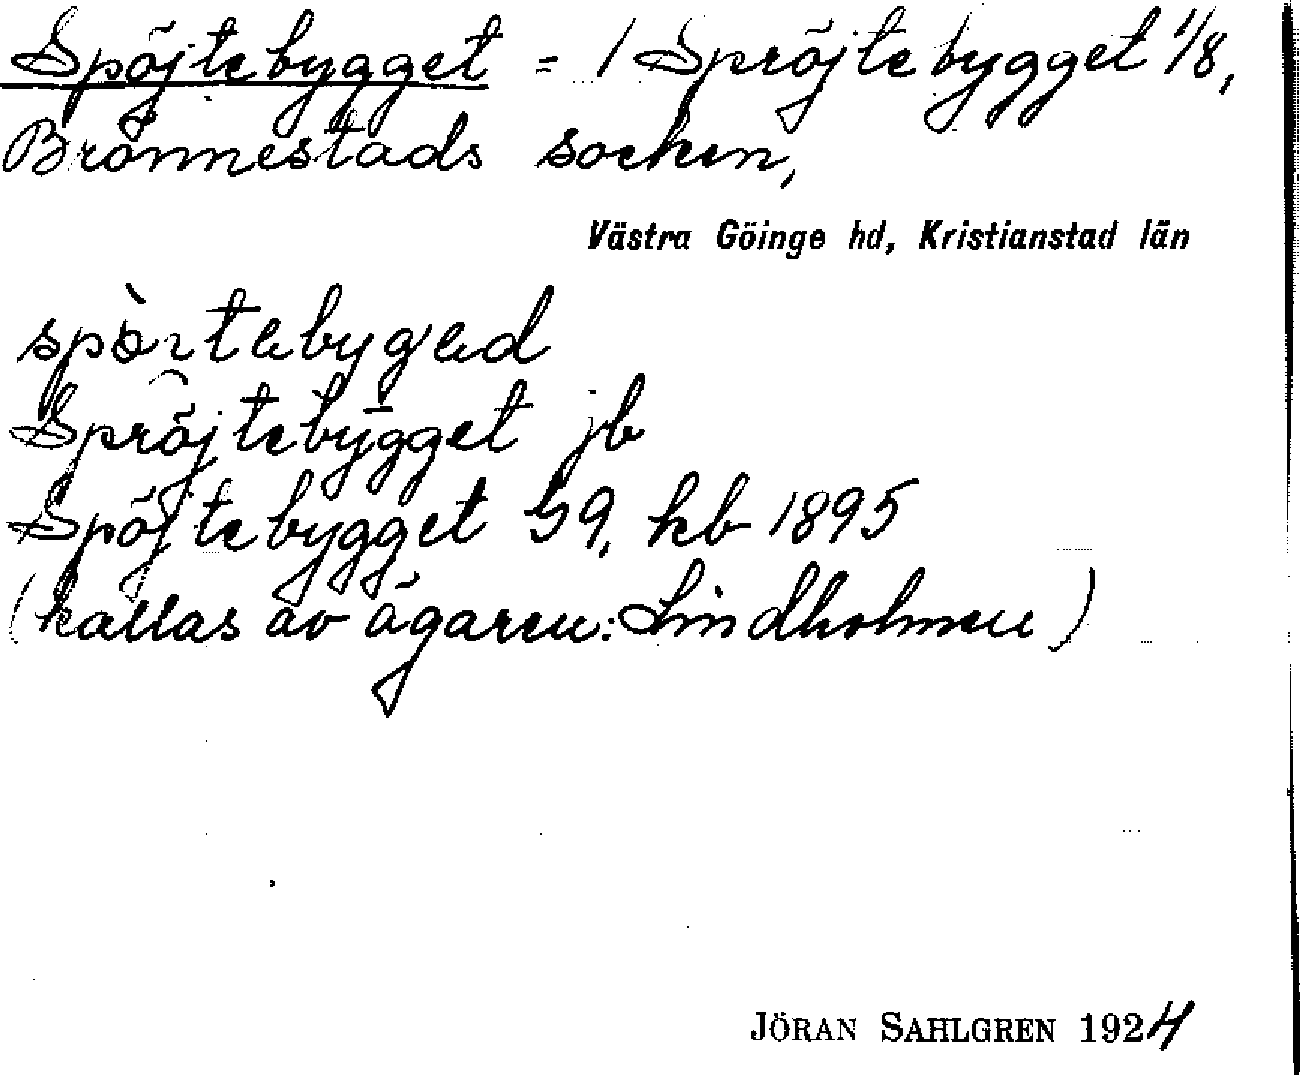 Spöjtebygget = 1 Spröjtebygget 1/8,
Brönnestads socken,
Västra Göinge hd, Kristianstad län
Spröjtebygget jb
Spöjtebygget 59, kb 1895
(kallas av ägaren: Lindholmen)
JÖRAN SAHLGREN 1924